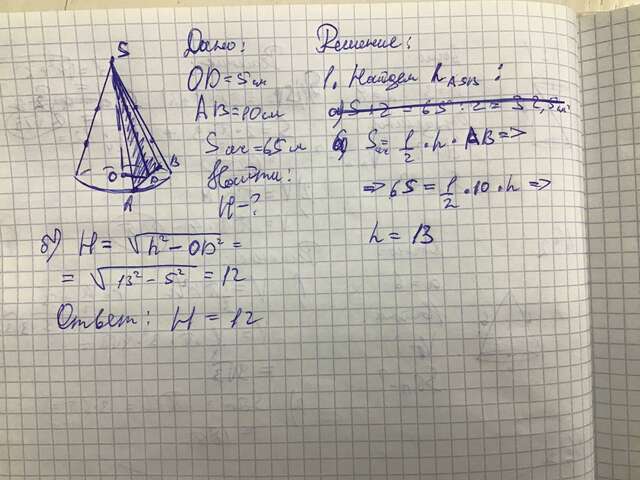 S
O
D
B
A
Дано:
OD = 5 см
AB = 10 см
Sсеч = 65 м
Найти:
H - ?
Решение:
1. Найдем hASB:
S : 2 = 65 : 2 = 32,5 м
а) S = 1/2 · h · AB =>
=> 65 = 1/2 · 10 · h =>
h = 13
б) H = √h² - OD² =
= √13² - 5² = 12
Ответ: H = 12